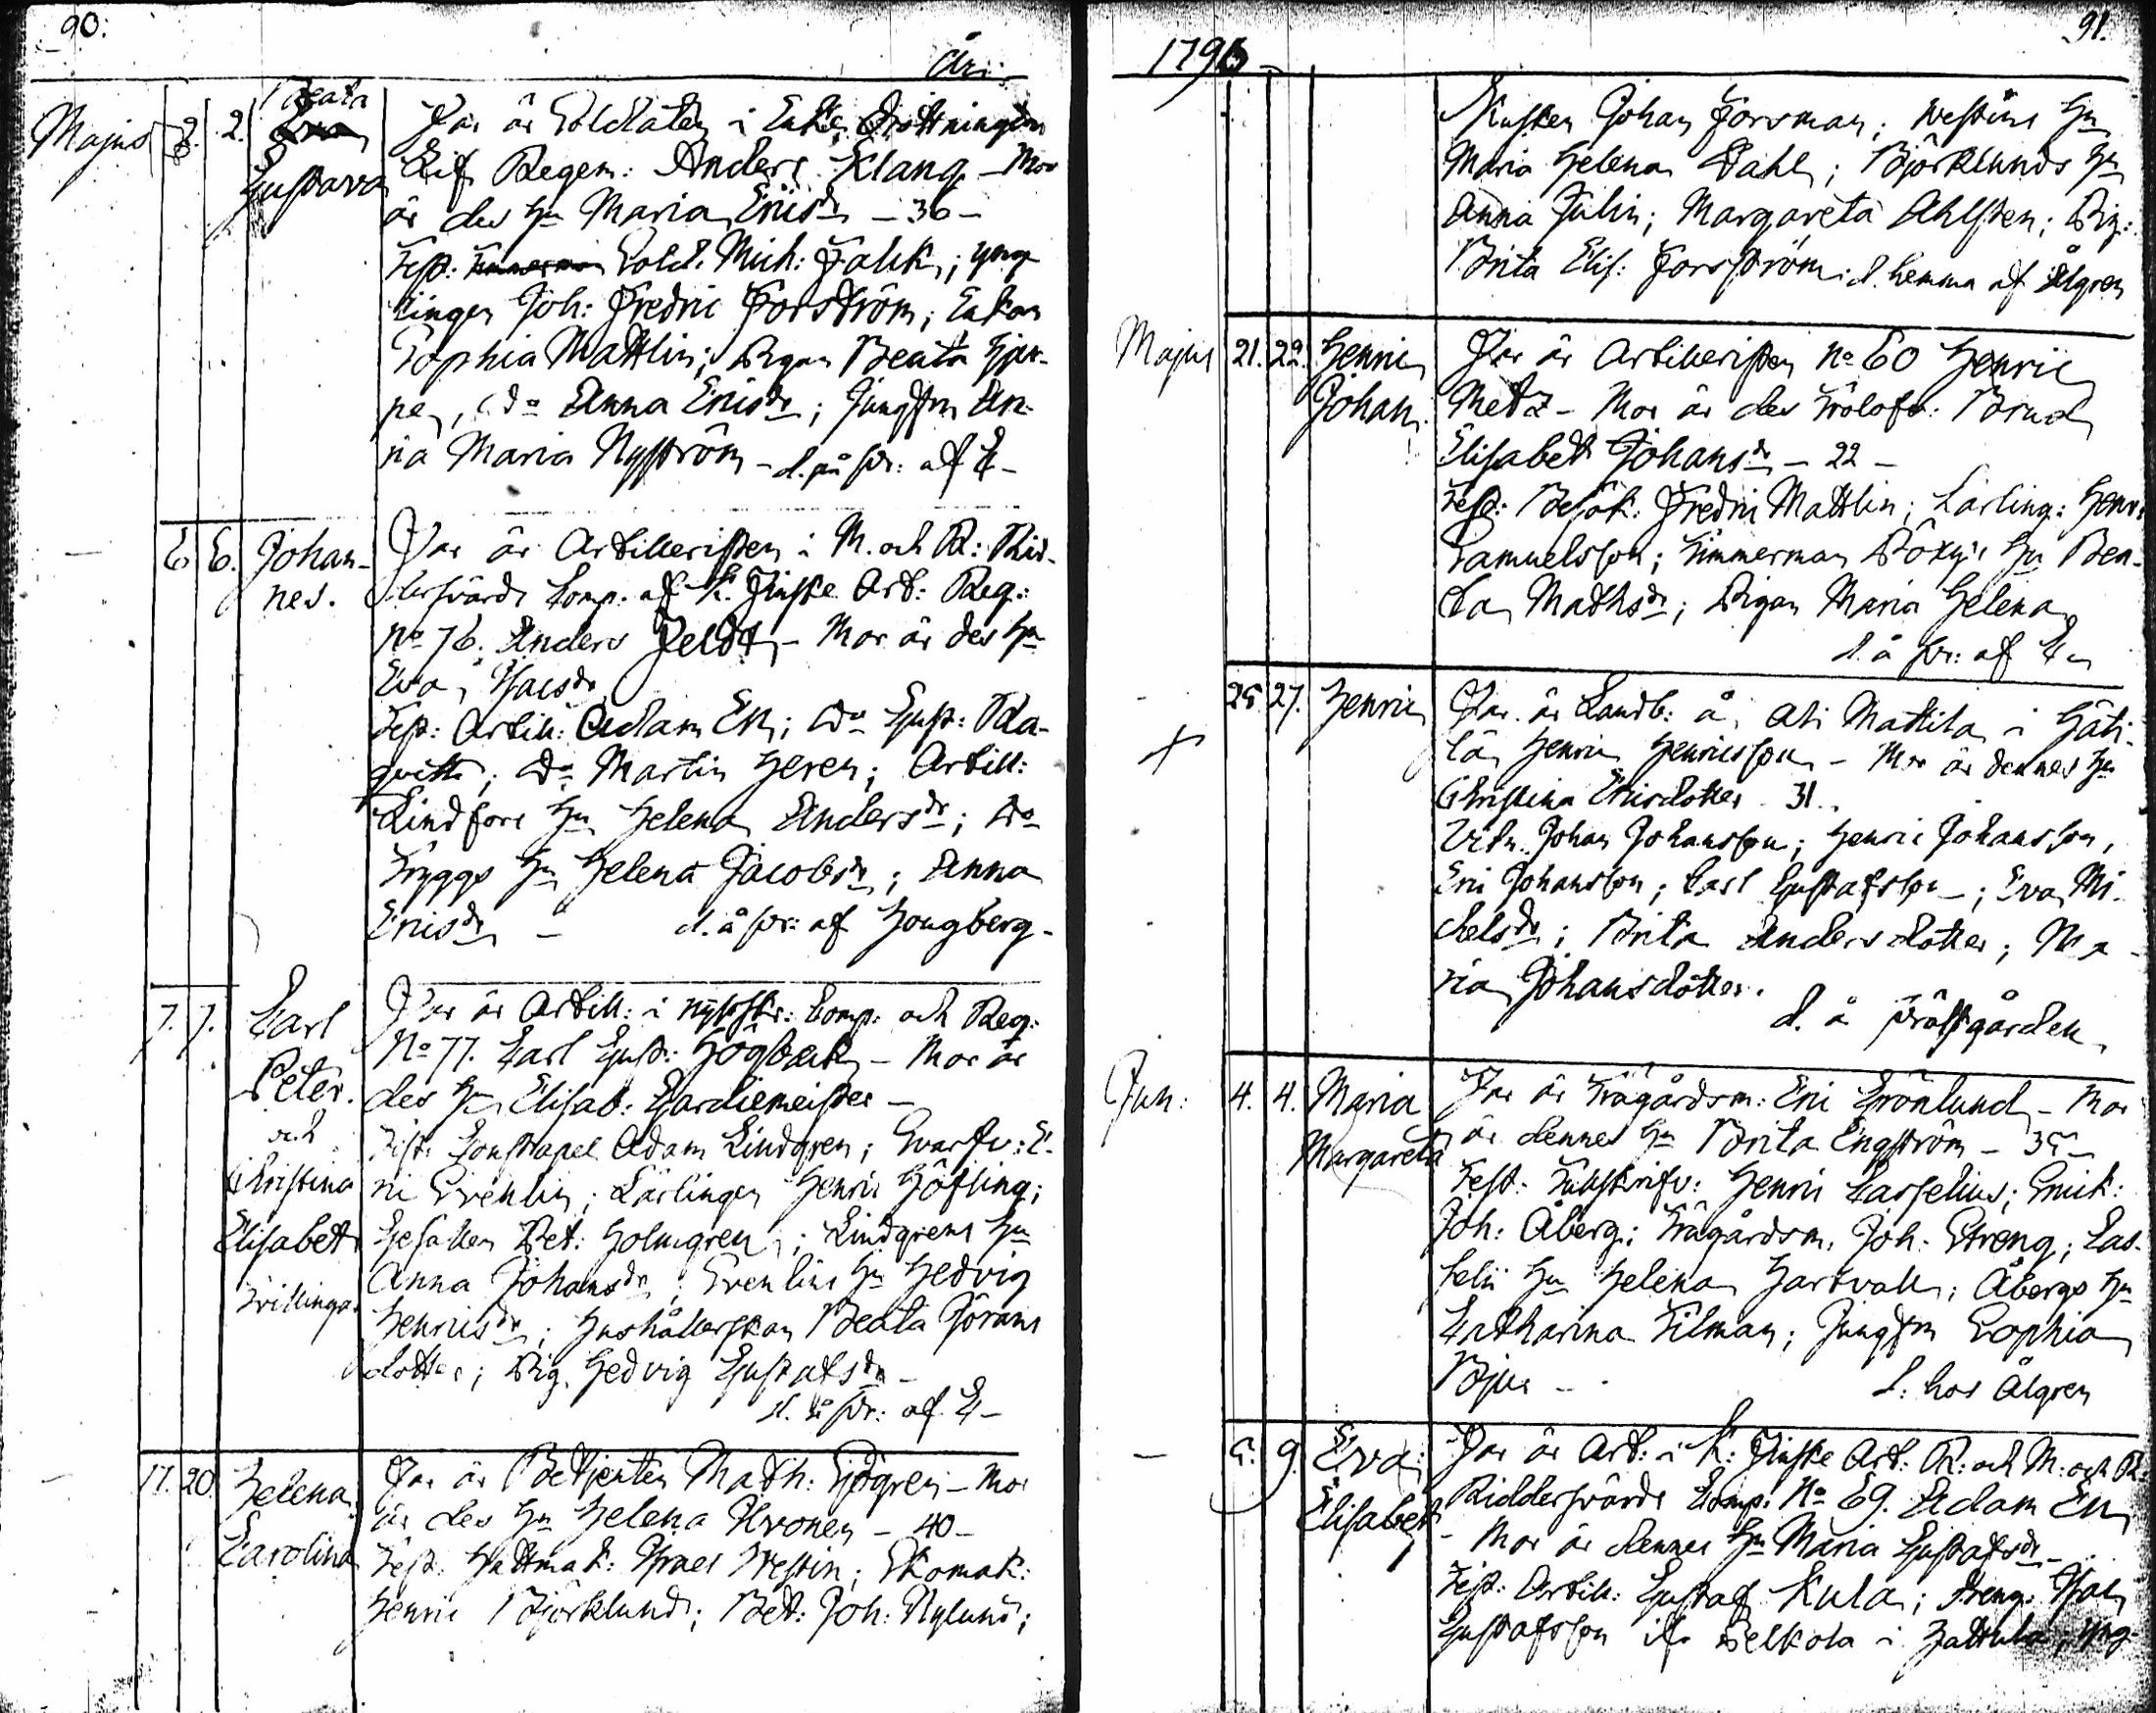 90.
År
Majus 2. 2. Beata Gustava
Far är Soldaten i Enke Drottningens
Lif Regem: Anders Klang – Mor
är des Hu Maria Ericsdr – 36 –
Test: Sold. Mich: Falk; yng-
lingen Joh: Fredric Forsström; Enkan
Sophia Mattlin; Pigan Beata Hjer-
pe, do Anna Ericsdr; Jungfrn An-
na Maria Nyström – d. på pr: af
6 6. Johan-
nes.
Far är Artilleristen i M. och R: Rid-
dersvärds Comp. af K. Finske Art: Reg:
No 76. Anders Feldt – Mor är des Hu
Eva Isacsdr
Test: Artill: Adam Ek; do Gust: Ra-
qvist; do Martin Heren; Artill:
Lindfors Hu Helena Andersdr; do
Tryggs Hu Helena Jacobsdr; Anna
Ericsdr – d. å pr: af Hougberg –
7. 7. Carl
Peter.
och
Christina
Elisabet
tvillingar
Far är Artill: i Comp: och Reg:
No 77. Carl Gust: Högback – Mor är
des Hu Elisab: Gardiemeister –
Test: Constapel Adam Lindgren; Svarfv: E-
ric Svenlin; Lärlingen Henric Höfling;
Gesällen Pet: Holmgren; Lindgrens Hu
Anna Johansdr; Svenlins Hu Hedvig
Henricsdr; Hushållerskan Beata Jörans
dotter; Pig. Hedvig Gustafsdr –
d. å pr: af
17. 20. Helena
Carolina
Far är Betjenten Math: Sjögren – Mor
är des Hu Helena Hvonen – 40 –
Test: Hattmak: Israel Westin; Skomak:
Henric Björklund; Bet: Joh: Nylund;
91.
1796
Kusken Johan Forsman; Westins Hu
Maria Helena Dahl; Björklunds Hu
Anna Julin; Margareta Ahlsten; Pig:
Brita Elis: Forsström: d. hemma af Ålgren
Majus 21. 22. Henric
Johan.
Far är Artilleristen No 60 Henric
Metz – Mor är des Trolofv: Brud
Elisabet Johansdr – 22 –
Test: Besök: Fredric Mattlin; Lärling: Henr:
Samuelsson; Timmerman Hu Bea-
ta Mathsdr; Pigan Maria Helena
d. å pr: af
25 27. Henric
Far är Landb: å Ali Mattila i Häti-
lä Henric Henricsson – Mor är dennes Hu
Christina Ericsdotter 31.
Vitn. Johan Johansson; Henric Johansson,
Eric Johansson; Carl Gustafsson –; Eva Mi-
chelsdr; Brita Andersdotter; Ma-
ria Johansdotter.
d. å Prästgården
Jun: 4. 4. Maria
Margareta
Far är Trägårdsm: Eric Grönlund – Mor
är dennes Hu Brita Engström – 35 –
Test: Tullskrifv: Henric Casselius; Snick:
Joh: Åberg; Trägårdsm. Joh: Streng; Cas-
selii Hu Helena Hartvall; Åbergs Hu
Catharina Tilman; Jungfrn Sophia
Böjer –
d: hos Ålgren
5. 9. Eva
Elisabet
Far är Art: i K: Finske Art: R: och M: och R:
Riddersvärds Comp: No 69. Adam Ek
– Mor är dennes Hu Maria Gustafsdr –
Test: Artill: Gustaf Kula; Dreng: Isak
Gustafsson ifr. Pelkola i Hattula; yng-